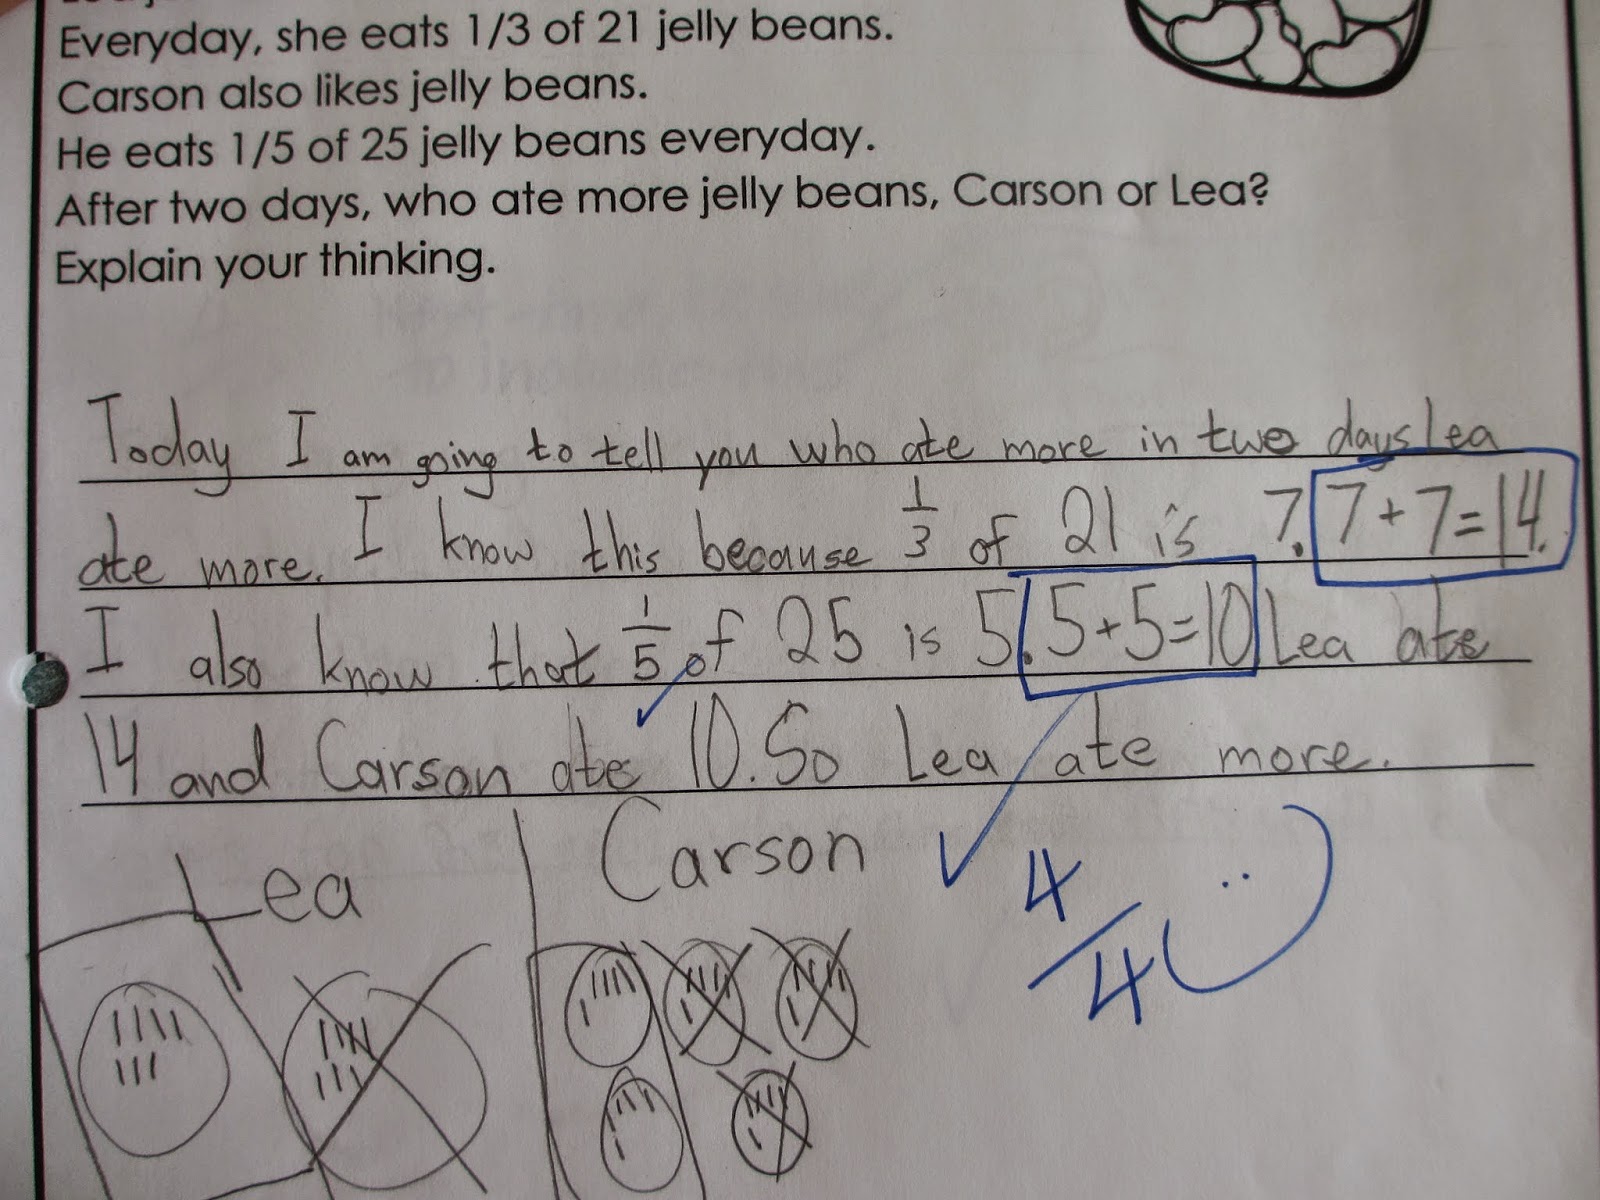 Everyday, she eats 1/3 of 21 jelly beans.
Carson also likes jelly beans.
He eats 1/5 of 25 jelly beans everyday.
After two days, who ate more jelly beans, Carson or Lea?
Explain your thinking.
Today I am going to tell you who ate more in two days Lea
ate more. I know this because 1/3 of 21 is 7. 7+7=14.
I also know that 1/5 of 25 is 5. 5+5=10 Lea ate
14 and Carson ate 10. So Lea ate more.
Lea
Carson
4/4